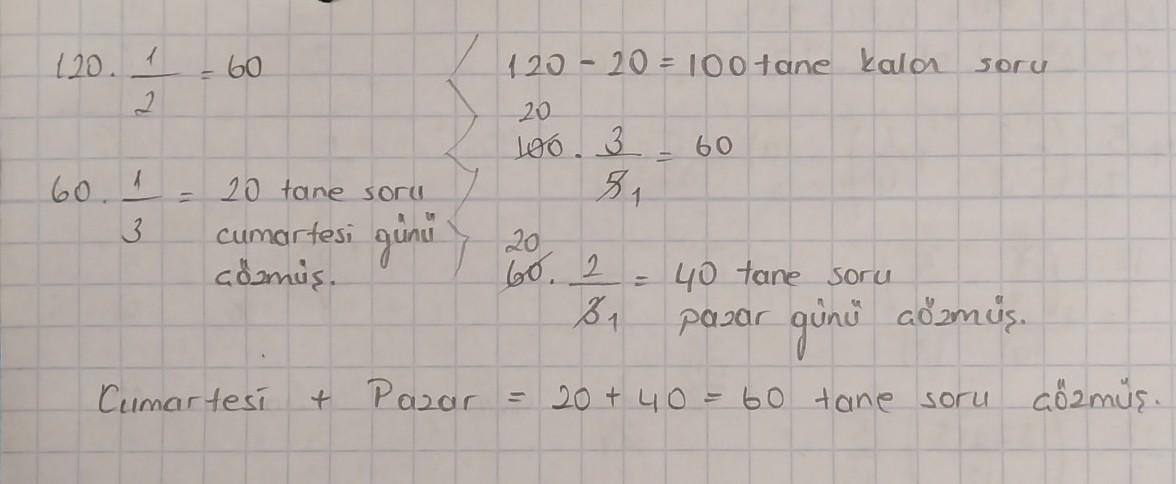 120 . 1/2 = 60
60 . 1/3 = 20 tane soru
cumartesi günü
çözmüş.
120 - 20 = 100 tane kalan soru
20
100 . 3/5 1 = 60
20
60 . 2/3 1 = 40 tane soru
pazar günü çözmüş.
Cumartesi + Pazar = 20 + 40 = 60 tane soru çözmüş.